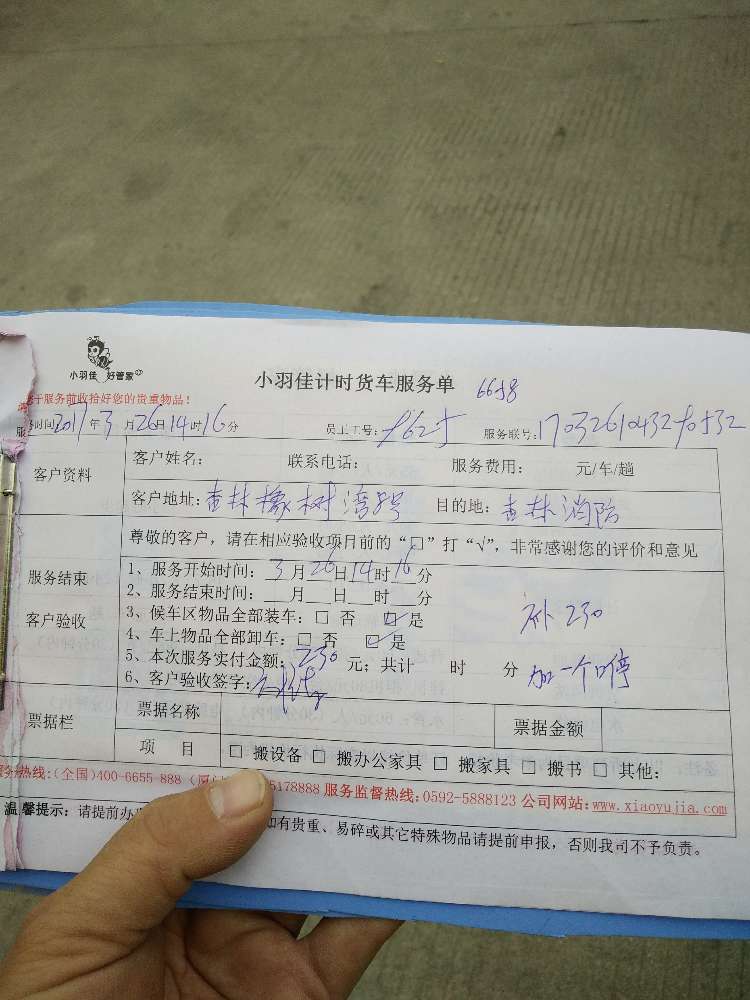 小羽佳 好管家
小羽佳计时货车服务单 6658
服务前收拾好您的贵重物品！
时间2017年3月26日14时16分 员工工号： 服务联号：
客户资料
客户姓名： 联系电话： 服务费用： 元/车/趟
客户地址：杏林橡树湾 目的地：杏林消防
服务结束
客户验收
尊敬的客户，请在相应验收项目前的“口”打“√”，非常感谢您的评价和意见
1、服务开始时间：3月26日14时16分
2、服务结束时间：___月___日___时___分
3、候车区物品全部装车：□ 否 ☑是
4、车上物品全部卸车：□ 否 ☑是
5、本次服务实付金额：230元；共计 时 分
6、客户验收签字：
补230
加一个停
票据栏
票据名称 票据金额
项 目 □ 搬设备 □ 搬办公家具 □ 搬家具 □ 搬书 □ 其他：
务热线:(全国)400-6655-888 5178888 服务监督热线:0592-5888123 公司网站:www.xiaoyujia.com
温馨提示：请提前办 如有贵重、易碎或其它特殊物品请提前申报，否则我司不予负责。